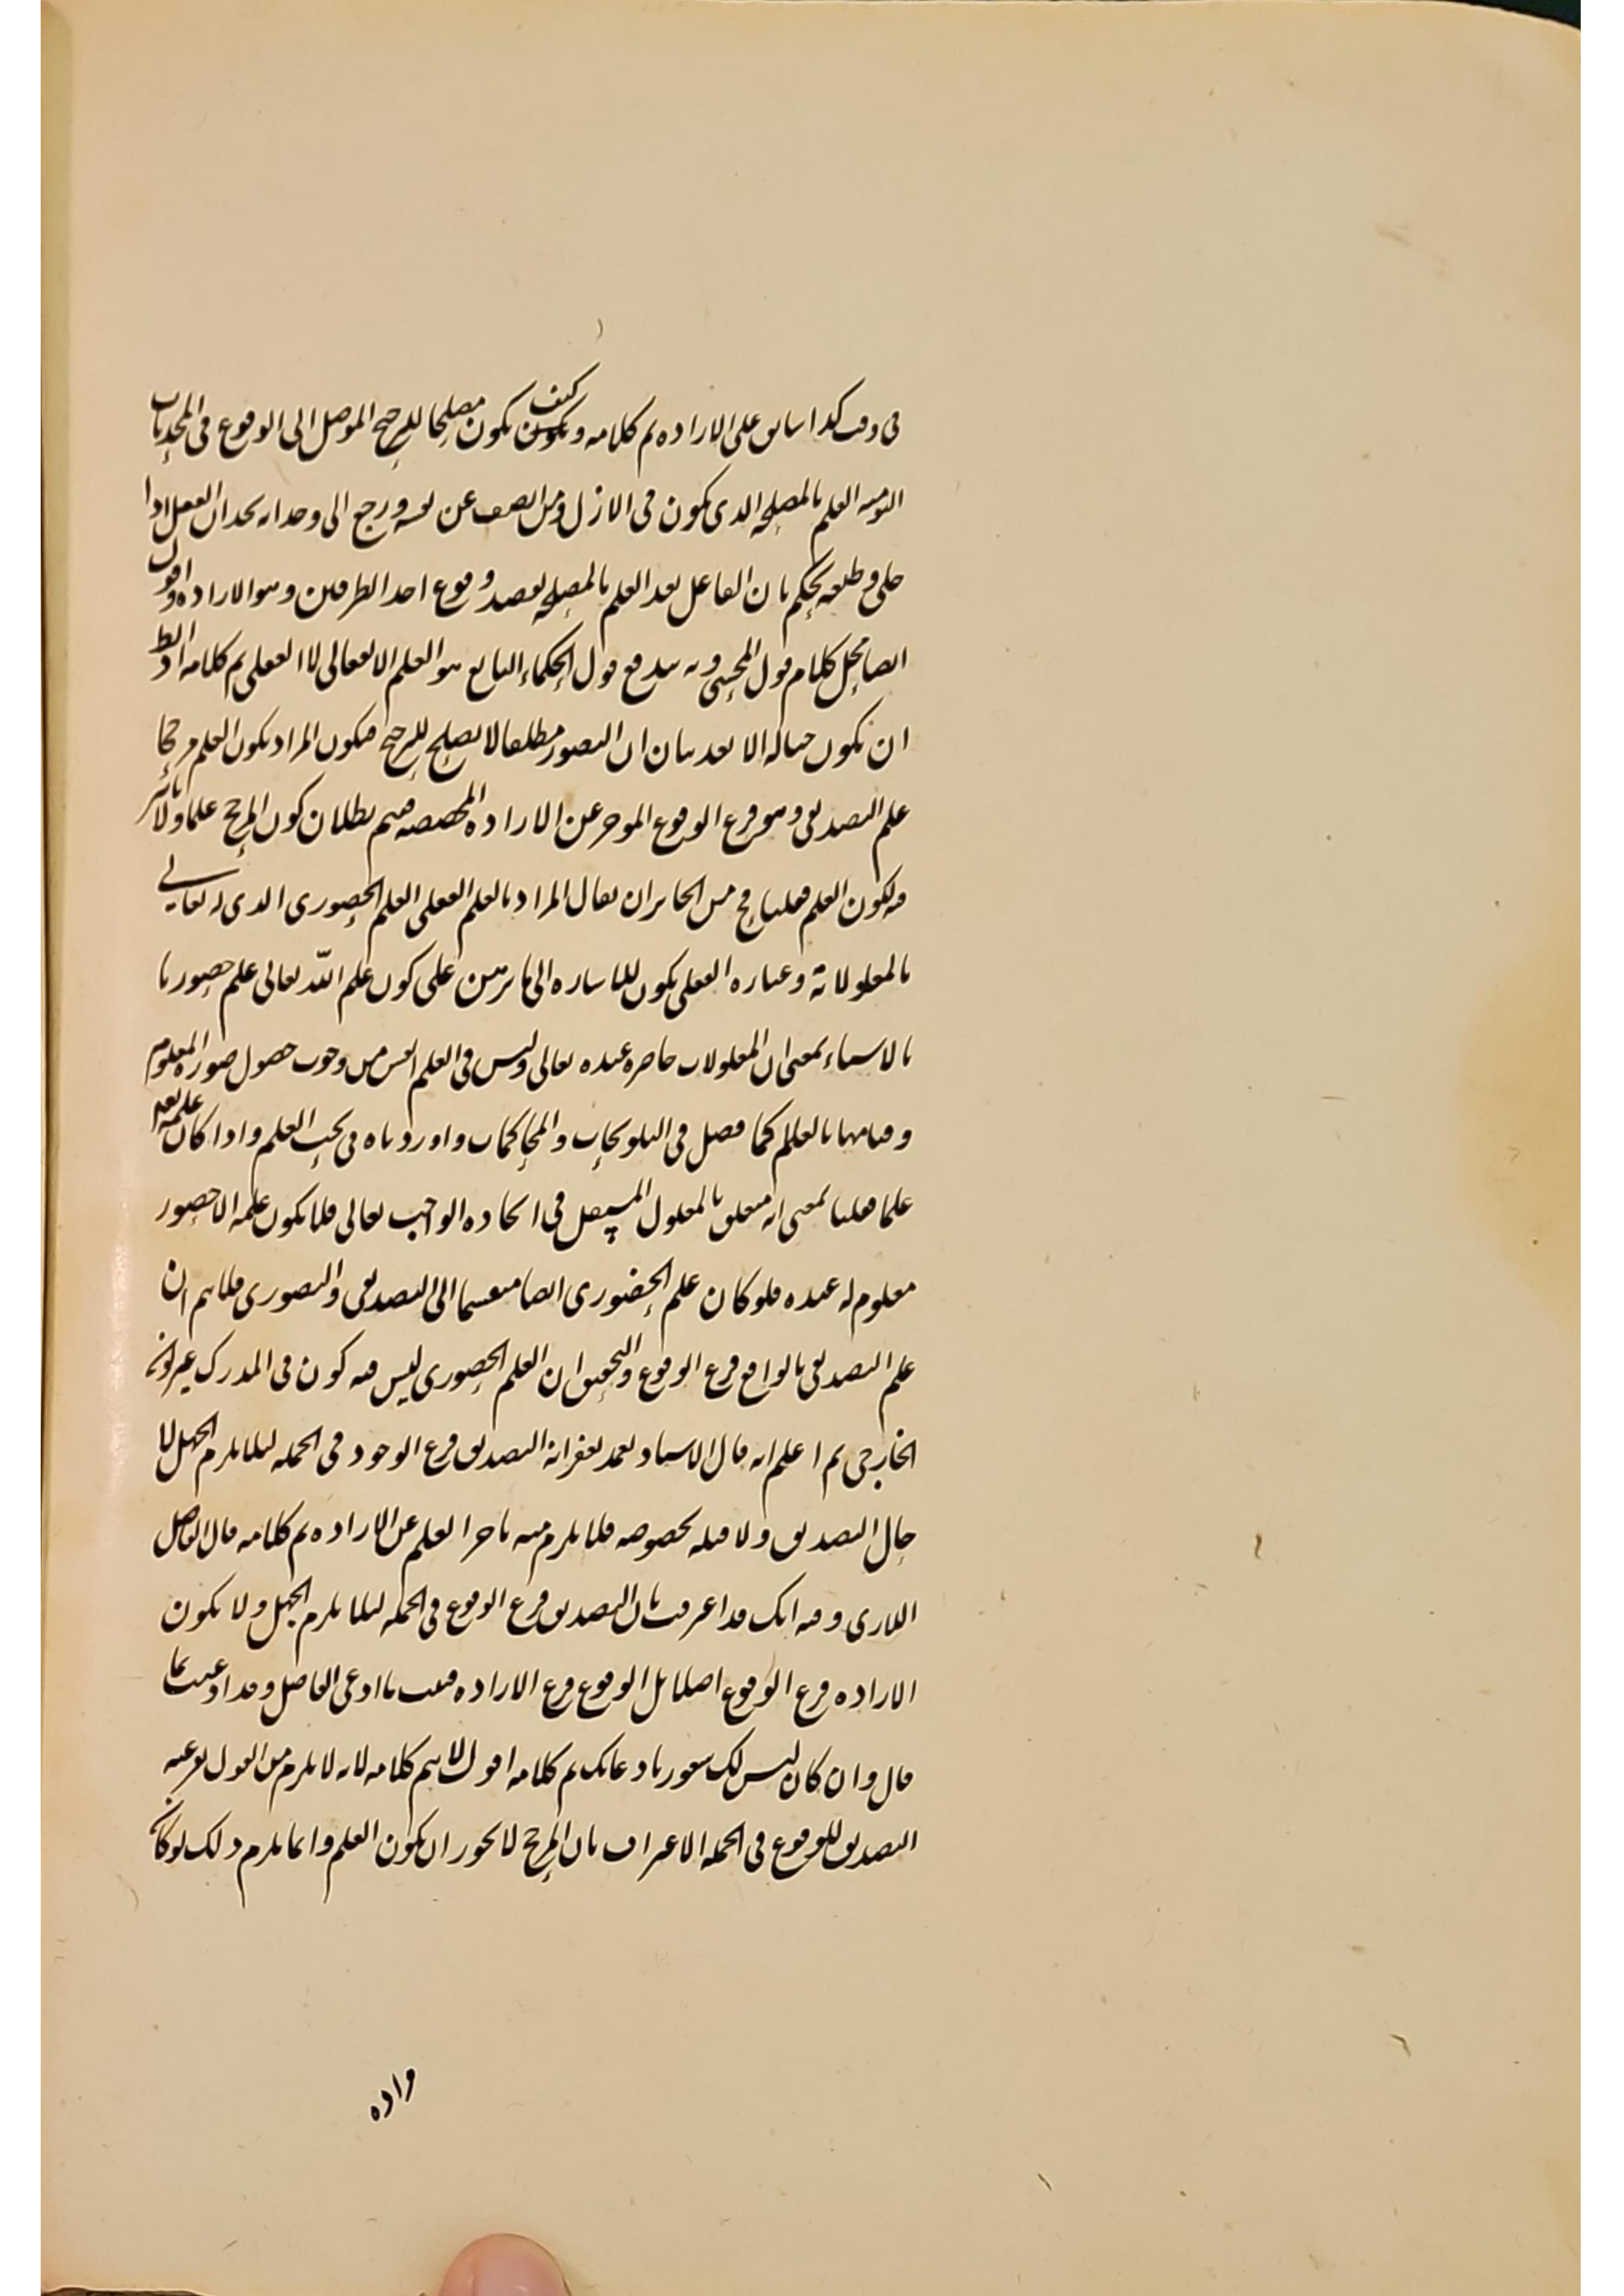 فى وقت كذا سابق على الاراده تم كلامه وكيف يكون مصلحا للترجيح الموصل الى الوقوع فى المحدثات
اليوميه العلم بالمصلحه الذى يكون فى الازل ومن انصف عن نفسه ورجع الى وجدانه يجد ان العقل اذا
خلى وطبعه يحكم بان الفاعل بعد العلم بالمصلحه يقصد وقوع احد الطرفين وهو الاراده واقول
ايضا محل كلام قول المحشى وبه يندفع قول الحكماء التابع هو العلم الانفعالى لا الفعلى تم كلامه اذ
ان يكون حاله الا بعد بيان ان التصور مطلقا لا يصلح للترجيح فيكون المراد بكون العلم مرجحا
علم التصديقى وهو فرع الوقوع الموخر عن الاراده المخصصه فيتم بطلان كون المرجح علما ولا تاثير
فيه لكون العلم فعليا ح من الجائز ان يقال المراد بالعلم الفعلى العلم الحضورى الذى له تعالى
بالمعلولاته وعباره الفعلى يكون للاشاره الى ما برهن على كون علم الله تعالى علم حضوريا
بالاشياء بمعنى ان المعلولات حاضره عنده تعالى وليس فى العلم ليس من وجوب حصول صوره المعلوم
وقيامها بالعالم كما فصل فى التلويحات والمحاكمات واوردناه فى بحث العلم واذا كان علمه تعالى
علما فعليا بمعنى انه متعلق بالمعلول المستقل فى ايجاده الواجب تعالى فلا يكون علمه الا حضور
معلوم له عنده فلو كان علم الحضورى ايضا منقسما الى التصديقى والتصورى فلا يتم ان
علم التصديقى بالواقع فرع الوقوع والتحقيق ان العلم الحضورى ليس فيه كون فى المدرك غير كونه
الخارجى ثم اعلم انه قال الاستاد تغمد بغفرانه التصديق فرع الوجود فى الجمله لئلا يلزم الجهل لا
حال التصديق ولا قبله بخصوصه فلا يلزم منه تاخر العلم عن الاراده تم كلامه قال الفاضل
اللارى وفيه انك قد اعترفت بان التصديق فرع الوقوع فى الجمله لئلا يلزم الجهل ولا يكون
الاراده فرع الوقوع اصلا بل الوقوع فرع الاراده فثبت ما ادعى الفاضل وقد ادعيت بما
قال وان كان ليس لك شعور بادعائك تم كلامه اقول لا يتم كلامه لانه لا يلزم من القول بفرعيه
التصديق للوقوع فى الجمله الاعتراف بان المرجح لا يجوز ان يكون العلم وانما يلزم ذلك لو كان
واده